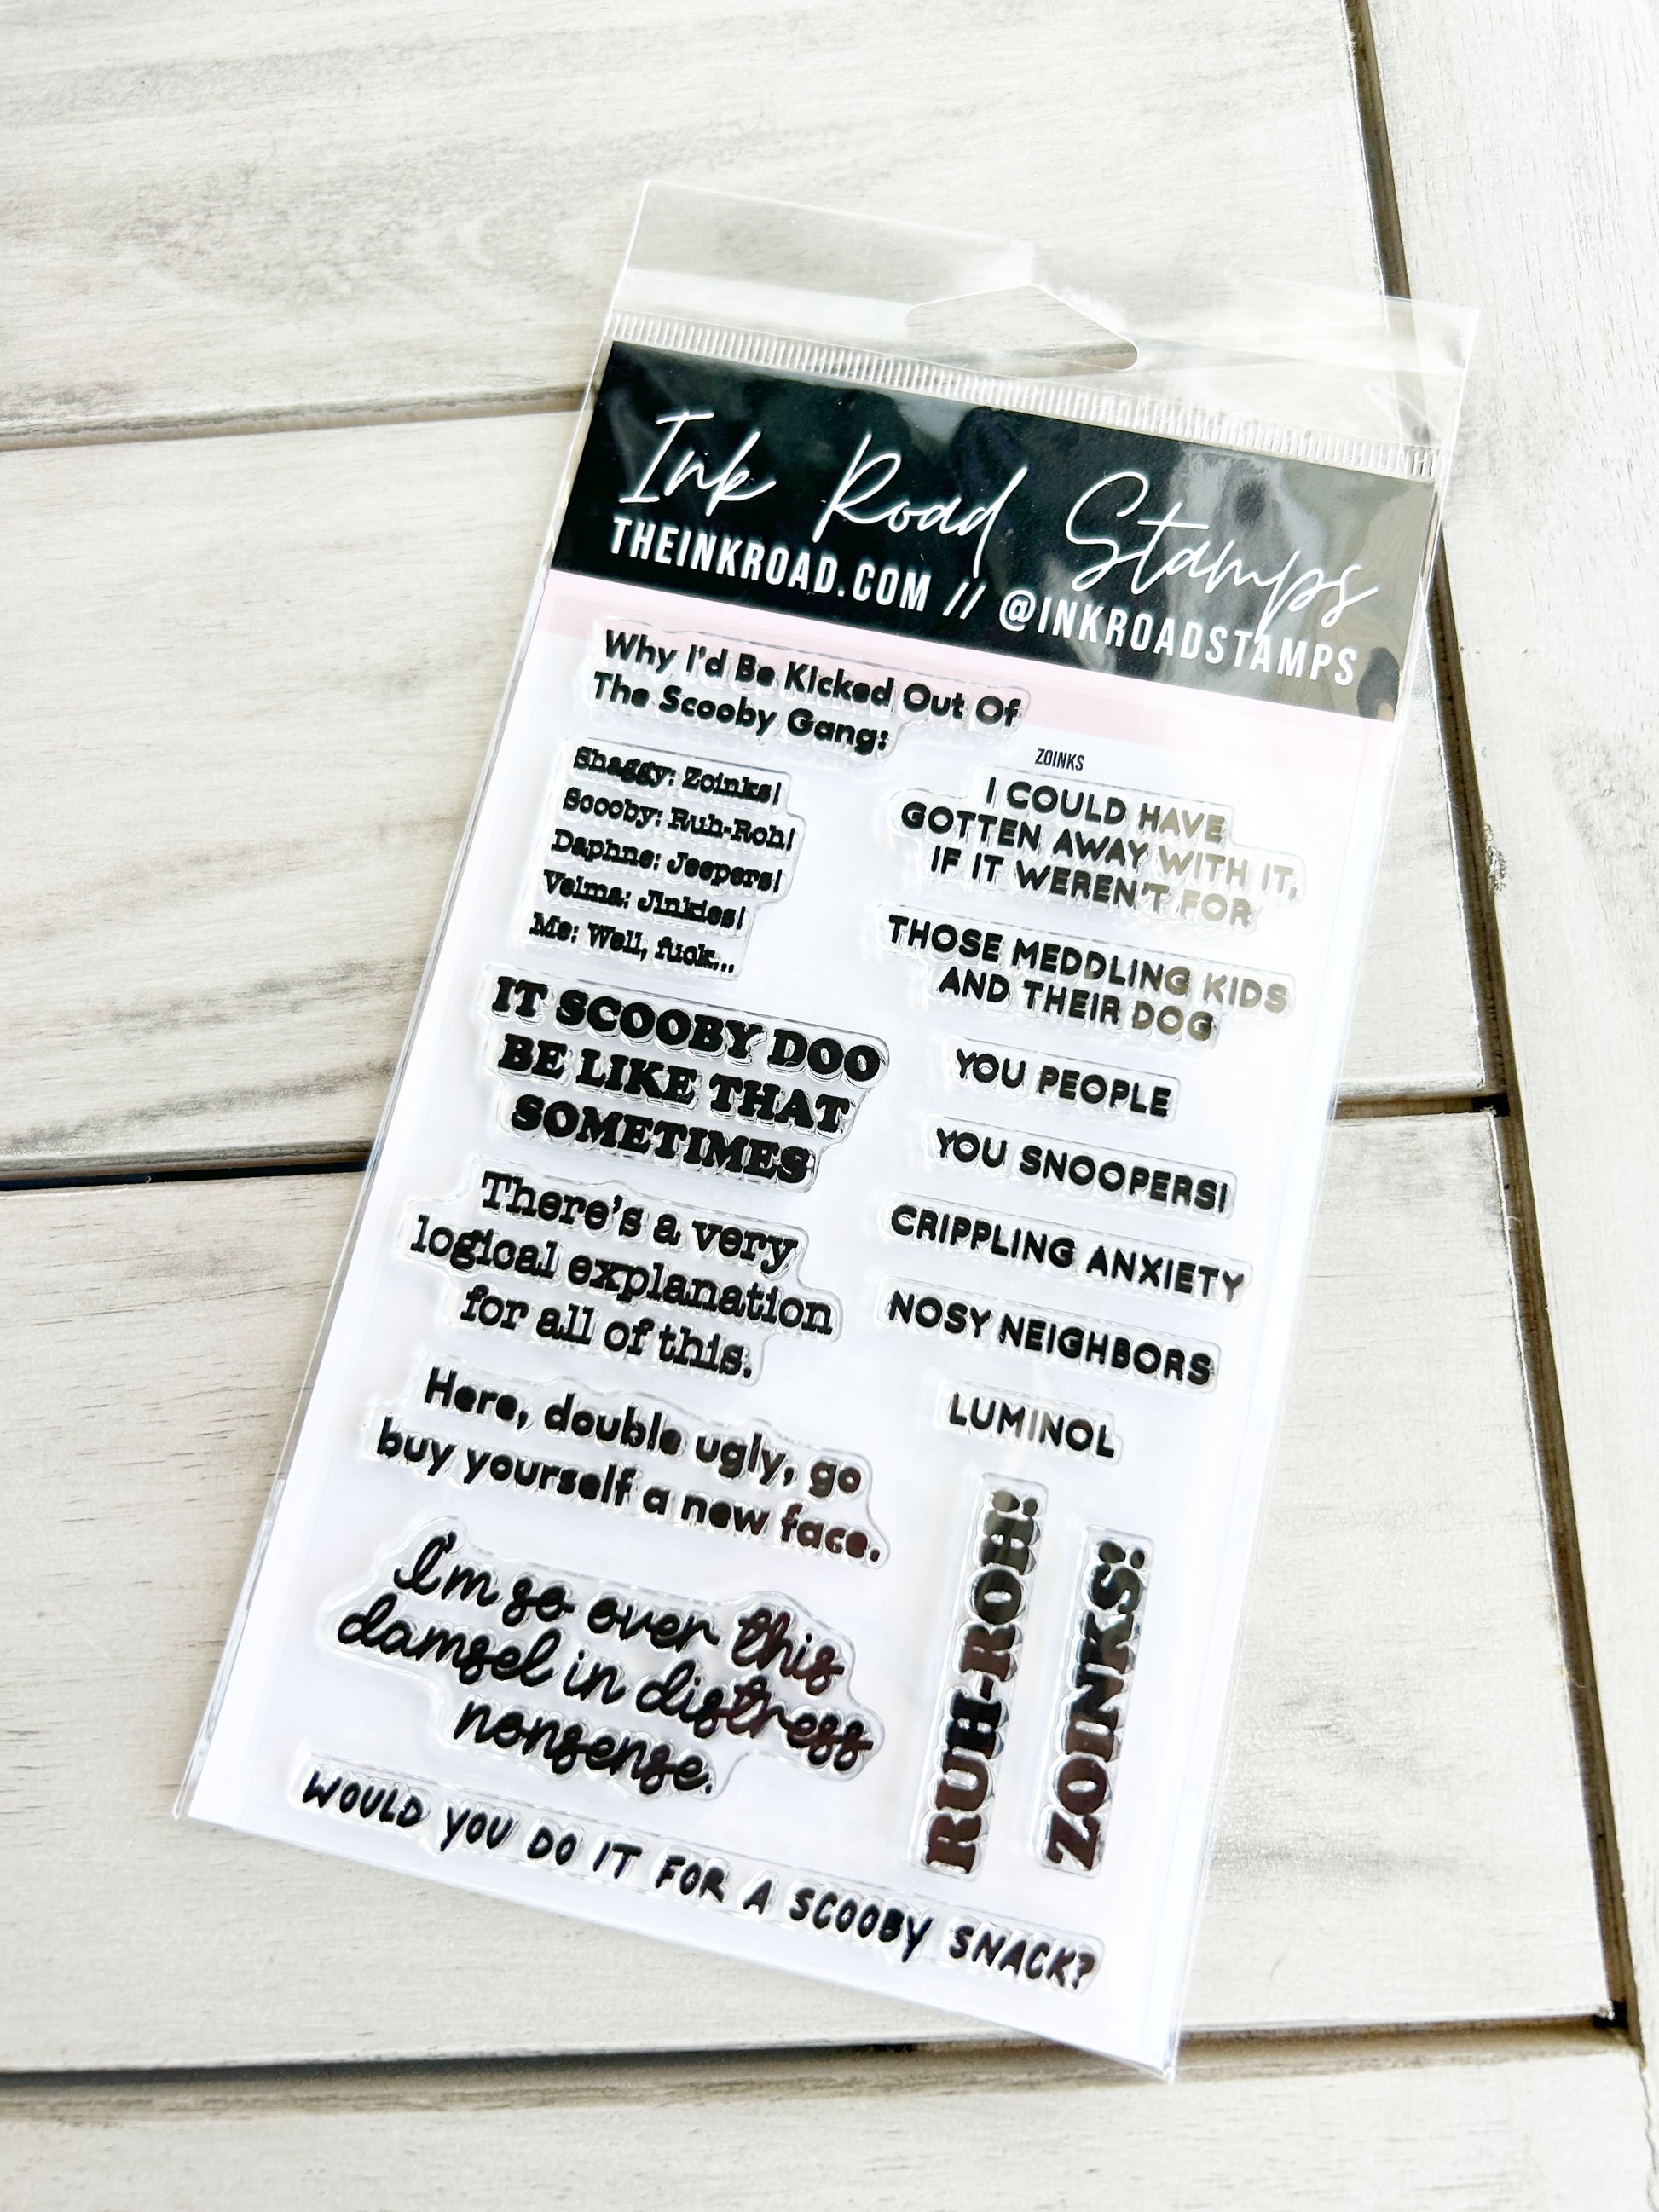 Ink Road Stamps
THEINKROAD.COM // @INKROADSTAMPS
Why I'd Be Kicked Out Of
The Scooby Gang:
Shaggy: Zoinks!
Scooby: Ruh-Roh!
Daphne: Jeepers!
Velma: Jinkies!
Me: Well, fuck...
IT SCOOBY DOO
BE LIKE THAT
SOMETIMES
There's a very
logical explanation
for all of this.
Here, double ugly, go
buy yourself a new face.
I'm so over this
damsel in distress
nonsense.
ZOINKS
I COULD HAVE
GOTTEN AWAY WITH IT,
IF IT WEREN'T FOR
THOSE MEDDLING KIDS
AND THEIR DOG
YOU PEOPLE
YOU SNOOPERS!
CRIPPLING ANXIETY
NOSY NEIGHBORS
LUMINOL
RUH-ROH!
ZOINKS!
WOULD YOU DO IT FOR A SCOOBY SNACK?